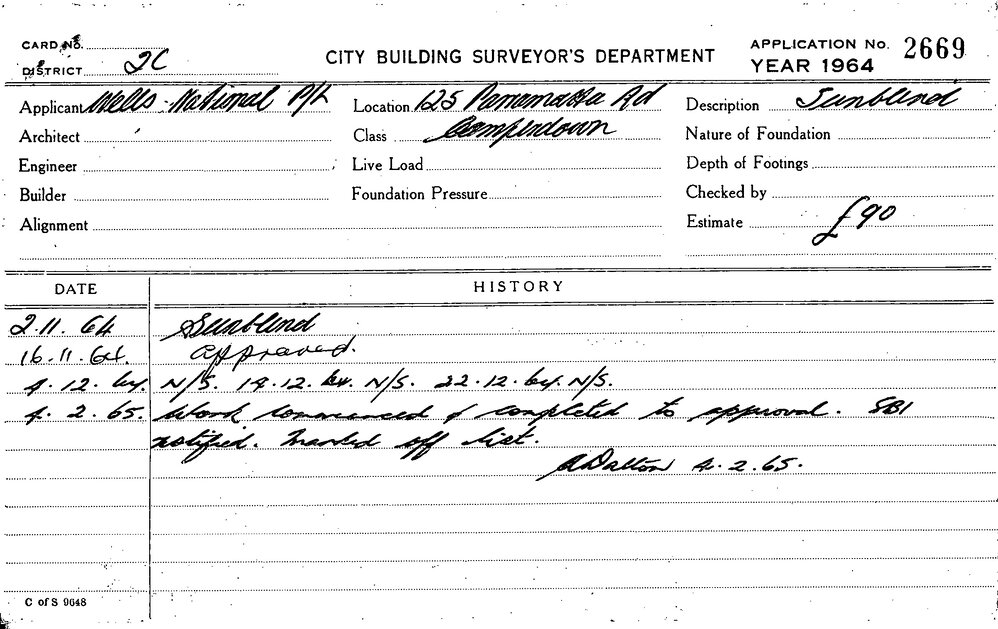 CARD No.
DISTRICT 2C
CITY BUILDING SURVEYOR'S DEPARTMENT
APPLICATION No. 2669
YEAR 1964
Applicant Wells National P/L
Location 125 Parramatta Rd
Description Sunblind
Architect
Class Camperdown
Nature of Foundation
Engineer
Live Load
Depth of Footings
Builder
Foundation Pressure
Checked by
Alignment
Estimate £90
DATE HISTORY
2.11.64 Sunblind
16.11.64. approved.
4.12.64. N/S. 14.12.64. N/S. 22.12.64. N/S.
4.2.65. Work commenced & completed to approval. SBI
notified. Marked off list.
ADalton 4.2.65.
C of S 9648